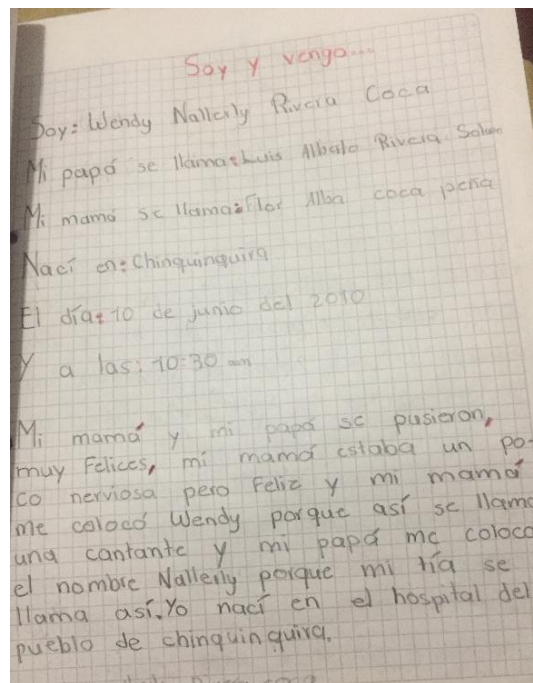 Soy y vengo...
Soy: Wendy Nallerly Rivera Coca
Mi papá se llama: Luis Alberto Rivera
Mi mamá se llama: Flor Alba coca peña
Nací en: Chinquinquira
El día: 10 de junio del 2010
Y a las: 10:30 am
Mi mamá y mi papá se pusieron,
muy Felices, mi mamá estaba un po-
co nerviosa pero Feliz y mi mamá
me colocó Wendy porque así se llama
una cantante y mi papá me coloco
el nombre Nallerly porque mi tía se
llama así. Yo nací en el hospital del
pueblo de chinquinquira.